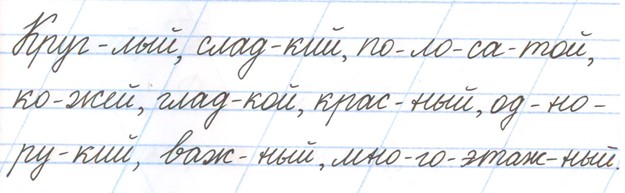 Круг-лый, слад-кий, по-ло-са-той,
ко-жей, глад-кой, крас-ный, од-но-
ру-кий, важ-ный, мно-го-этаж-ный.